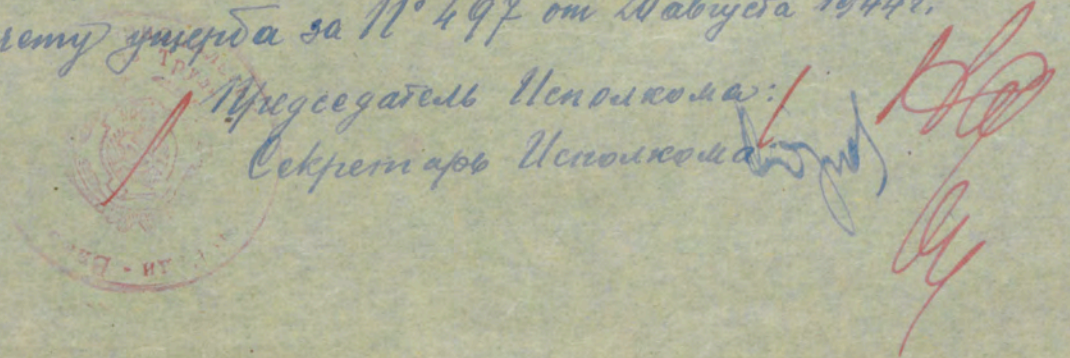 чету ущерба за № 497 от 20 августа 1944 г.
Председатель Исполкома:
Секретарь Исполкома